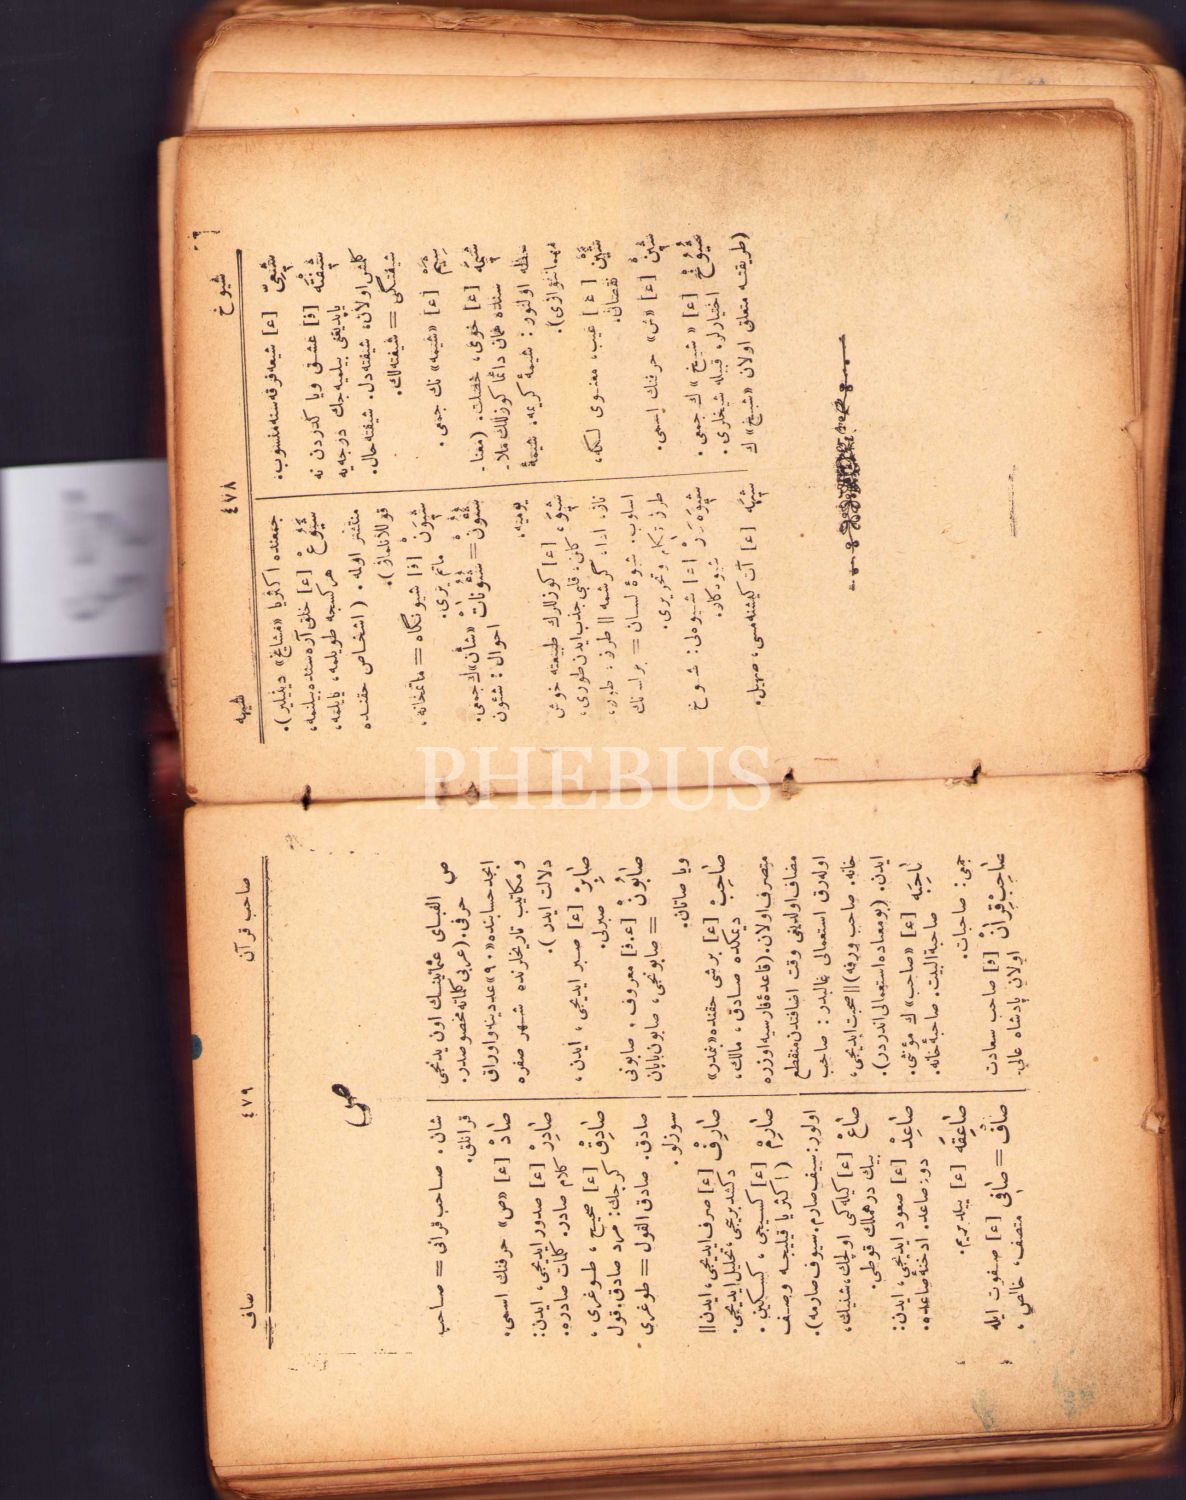 شيوخ
٤٧٨
شيهه
شِيعِىّ [ع] شيعه فرقه سنه منسوب.
شِيفْتَه [ف] عشق ويا كدردن نه
ياپديغنى بيلميه جك درجه يه
كلمش اولان، شيفته دل. شيفته حال.
شيفتگى = شيفته لك.
شِيَمْ [ع] «شيمه» نك جمعى.
شِيمَه [ع] خوى، خصلت. (معنا-
سنده همان دائما كوزللك ملا-
حظه اولنور: شيمهٔ كريمه. شيمهٔ
مهماننوازى).
شَيْن [ع] عيب، معنوى لكه،
نقصان.
شِينْ [ع] «ش» حرفنك اسمى.
شُيُوخْ [ع] «شيخ» ك جمعى.
اختيارلر. قبيله شيخلرى.
(طريقته متعلق اولان «شيخ» ك
جمعنده اكثريا «مشايخ» دينيلير).
شُيُوعْ [ع] خلق آره سنده بيلنمه،
هركسجه طويلمه، يايلمه،
منتشر اولمه. (اشخاص حقنده
قوللانلماز).
شِيوَنْ [ف] شيونگاه = ماتمخانه،
ماتم يرى.
شئونْ = شئونات «شأن» ك جمعى.
احوال: شئون
يوميه.
شِيوَه [ع] كوزللرك طبيعته خوش
كلن، قلبى جذب ايدن طورى،
ناز، ادا، كرشمه || طرز، طور،
اسلوب. شيوهٔ لسان = بر لسانك
طرز تكلم و تحريرى.
شيوه لى: شوخ
شيوه كار.
شِيهَه [ع] آت كيشنه مسى، صهيل.
صاحب قرآن
٤٧٩
صاف
ص
ص الفباى عثمانينك اون يدنجى
حرفى. (عربى كلماته مخصوصدر.
ابجد حسابنده «٩٠» عددينه و اوراق
و مكاتيب تاريخلرنده شهر صفره
دلالت ايدر).
صَابِرْ [ع] صبر ايديجى، ايدن،
صبرلى.
صَابُونْ [ع. ف] معروف. صابونى
= صابونجى، صابون ياپان
ويا صاتان.
صَاحِبْ [ع] برشى حقنده «بنمدر»
ديمكده صادق، مالك،
متصرف اولان. (قاعدهٔ فارسيه اوزره
مضاف اولديغى وقت اضافتدن منقطع
اوله رق استعمالى غالبدر: صاحب
خانه. صاحب ورقه) || صحبت ايديجى،
ايدن. (بو معناده استعمالى نادردر).
صَاحِبَه [ع] «صاحب» ك مؤنثى.
صاحبة البيت. صاحبهٔ خانه.
جمعى: صاحبات.
صَاحِبْ قِرَانْ [ف] صاحب سعادت
اولان پادشاه عالى.
شان. صاحب قرانى = صاحب
قرانلق.
صَادْ [ع] «ص» حرفنك اسمى.
صَادِرْ [ع] صدور ايديجى، ايدن:
كلام صادر. كلمات صادره.
صَادِقْ [ع] صحيح، طوغرى،
كرچك: مرد صادق. قول
صادق. صادق القول = طوغرى
سوزلو.
صَارِفْ [ع] صرف ايديجى، ايدن ||
صَارِمْ [ع] كسيجى، كسكين.
(اكثريا قيليجه وصف
اولور: سيف صارم. سيوف صارمه).
صَاعْ [ع] كيله كى اولچك، شنيك،
بيك درهملك قوطى.
صَاعِدْ [ع] صعود ايديجى، ايدن:
دود صاعد. ادخنهٔ صاعده.
صَاعِقَه [ع] ييلديريم.
صَافْ = صَافى [ع] صفوت ايله
متصف، خالص،
PHEBUS